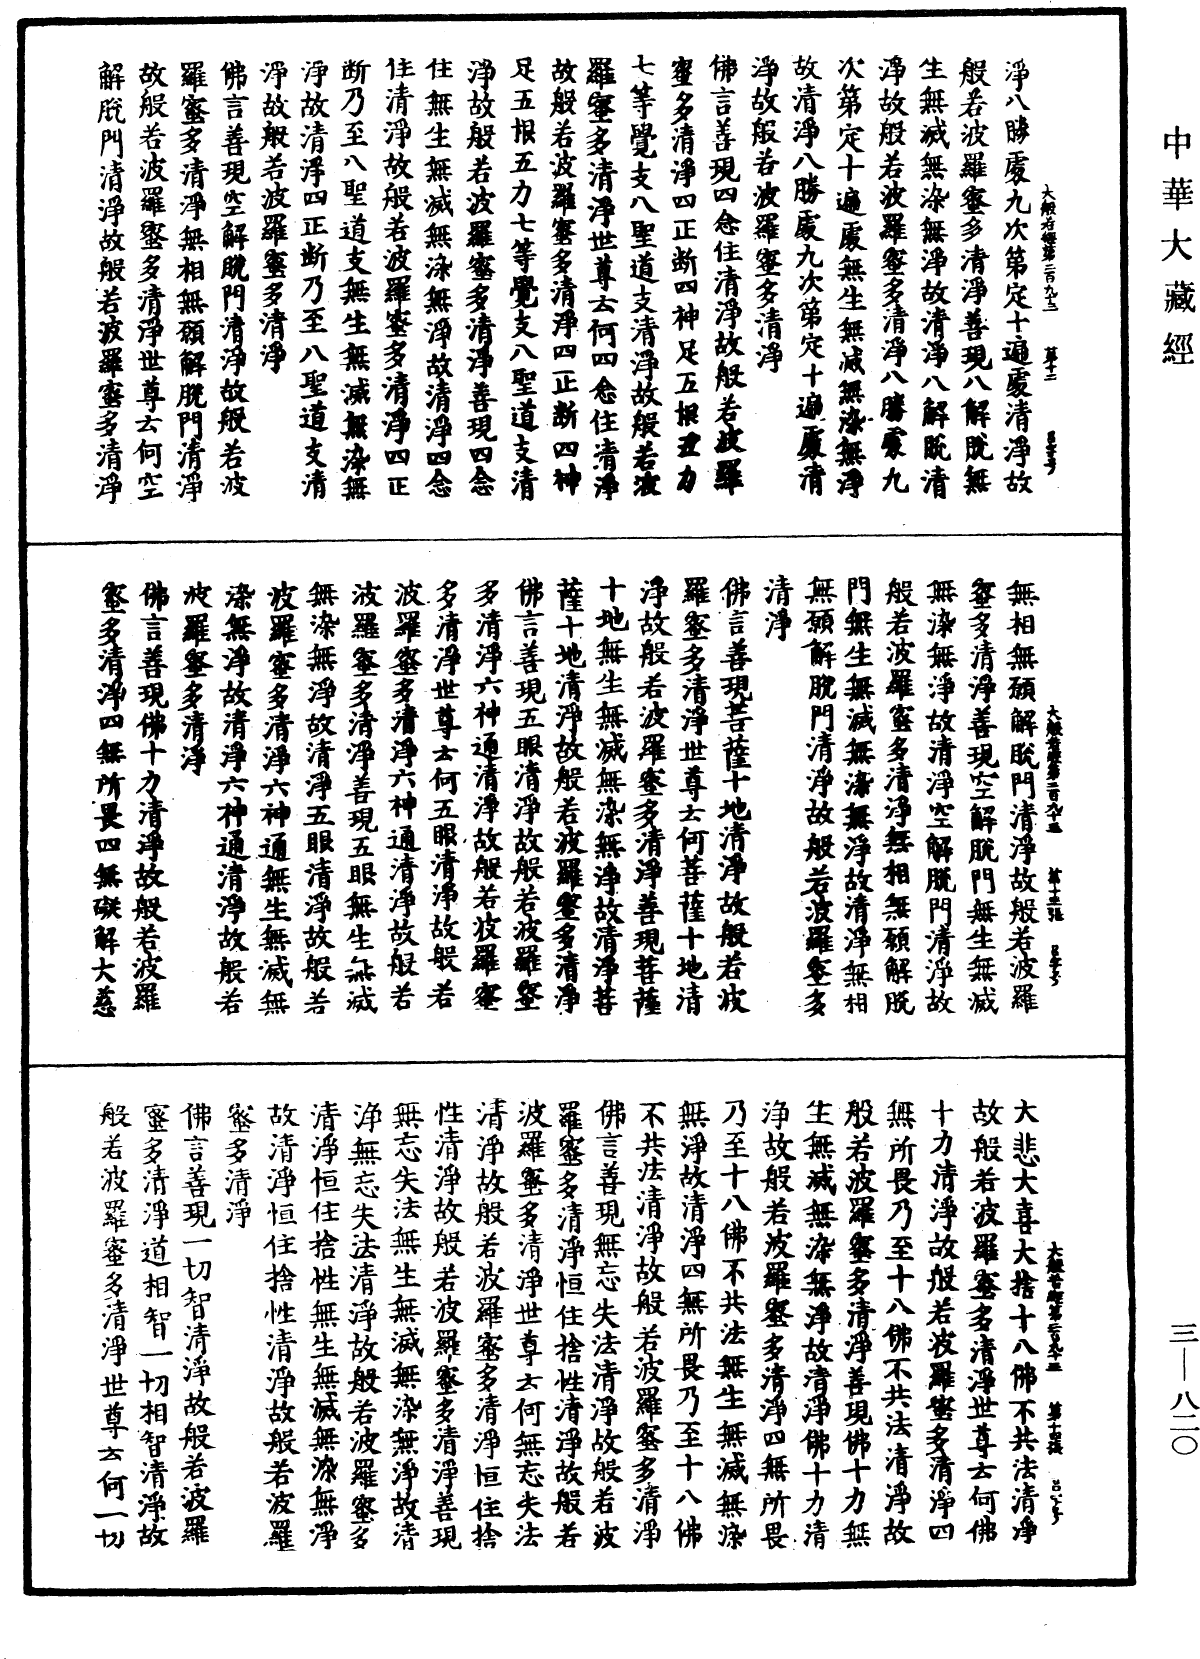 中華大藏經
三—八二〇
大般若經第二百九十三
淨八勝處九次第定十遍處清淨故
般若波羅蜜多清淨善現八解脫無
生無滅無染無淨故清淨八解脫清
淨故般若波羅蜜多清淨八勝處九
次第定十遍處無生無滅無染無淨
故清淨八勝處九次第定十遍處清
淨故般若波羅蜜多清淨
佛言善現四念住清淨故般若波羅
蜜多清淨四正斷四神足五根五力
七等覺支八聖道支清淨故般若波
羅蜜多清淨世尊云何四念住清淨
故般若波羅蜜多清淨四正斷四神
足五根五力七等覺支八聖道支清
淨故般若波羅蜜多清淨善現四念
住無生無滅無染無淨故清淨四念
住清淨故般若波羅蜜多清淨四正
斷乃至八聖道支無生無滅無染無
淨故清淨四正斷乃至八聖道支清
淨故般若波羅蜜多清淨
佛言善現空解脫門清淨故般若波
羅蜜多清淨無相無願解脫門清淨
故般若波羅蜜多清淨世尊云何空
解脫門清淨故般若波羅蜜多清淨
大般若經第二百九十三 第十三張
無相無願解脫門清淨故般若波羅
蜜多清淨善現空解脫門無生無滅
無染無淨故清淨空解脫門清淨故
般若波羅蜜多清淨無相無願解脫
門無生無滅無染無淨故清淨無相
無願解脫門清淨故般若波羅蜜多
清淨
佛言善現菩薩十地清淨故般若波
羅蜜多清淨世尊云何菩薩十地清
淨故般若波羅蜜多清淨善現菩薩
十地無生無滅無染無淨故清淨菩
薩十地清淨故般若波羅蜜多清淨
佛言善現五眼清淨故般若波羅蜜
多清淨六神通清淨故般若波羅蜜
多清淨世尊云何五眼清淨故般若
波羅蜜多清淨六神通清淨故般若
波羅蜜多清淨善現五眼無生無滅
無染無淨故清淨五眼清淨故般若
波羅蜜多清淨六神通無生無滅無
染無淨故清淨六神通清淨故般若
波羅蜜多清淨
佛言善現佛十力清淨故般若波羅
蜜多清淨四無所畏四無礙解大慈
大般若經第二百九十三 第十四張
大悲大喜大捨十八佛不共法清淨
故般若波羅蜜多清淨世尊云何佛
十力清淨故般若波羅蜜多清淨四
無所畏乃至十八佛不共法清淨故
般若波羅蜜多清淨善現佛十力無
生無滅無染無淨故清淨佛十力清
淨故般若波羅蜜多清淨四無所畏
乃至十八佛不共法無生無滅無染
無淨故清淨四無所畏乃至十八佛
不共法清淨故般若波羅蜜多清淨
佛言善現無忘失法清淨故般若波
羅蜜多清淨恒住捨性清淨故般若
波羅蜜多清淨世尊云何無忘失法
清淨故般若波羅蜜多清淨恒住捨
性清淨故般若波羅蜜多清淨善現
無忘失法無生無滅無染無淨故清
淨無忘失法清淨故般若波羅蜜多
清淨恒住捨性無生無滅無染無淨
故清淨恒住捨性清淨故般若波羅
蜜多清淨
佛言善現一切智清淨故般若波羅
蜜多清淨道相智一切相智清淨故
般若波羅蜜多清淨世尊云何一切